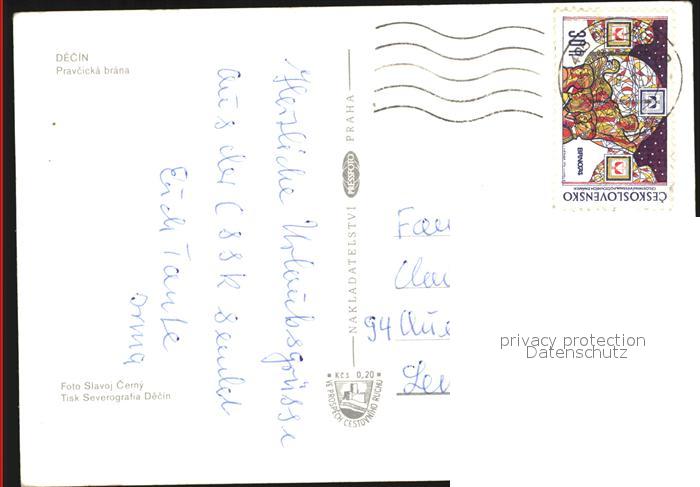 DĚČÍN
Pravčická brána
Herzliche Urlaubsgrüsse
aus der CSSR sendet
Euch Tante
Irma
Foto Slavoj Černý
Tisk Severografia Děčín
NAKLADATELSTVÍ PRESSFOTO PRAHA
Kčs 0,20
VE PROSPĚCH CESTOVNÍHO RUCHU
30h
ČESKOSLOVENSKO
Fam
94
privacy protection
Datenschutz